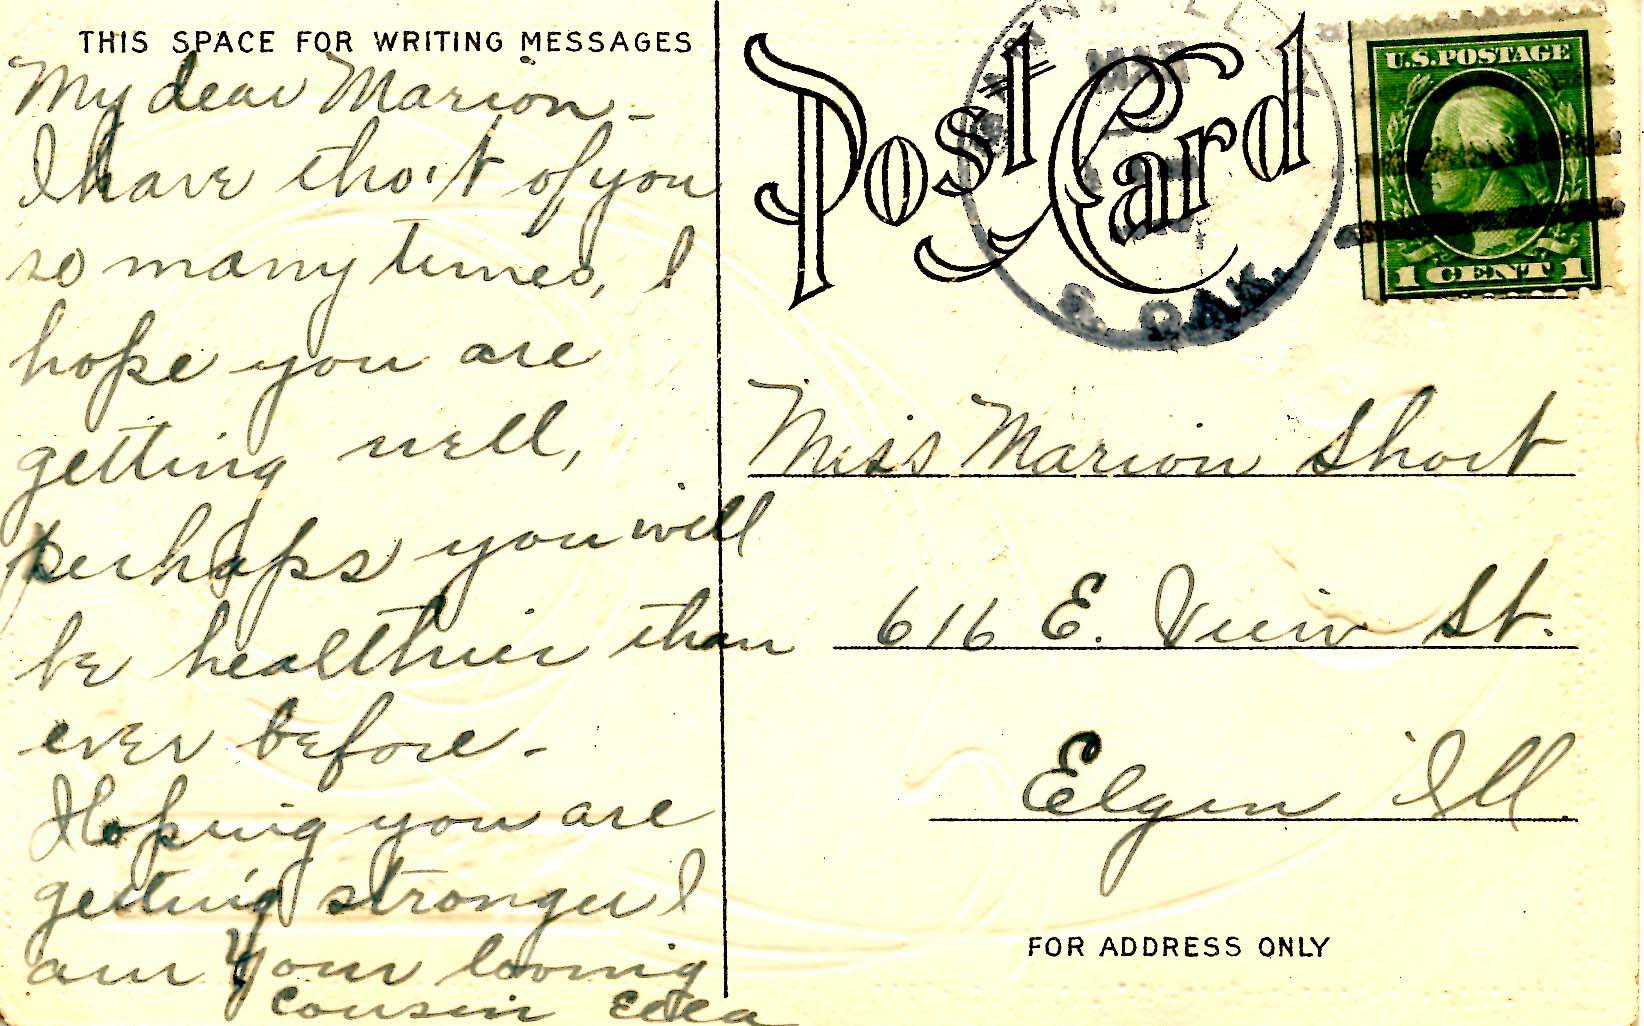 THIS SPACE FOR WRITING MESSAGES
My dear Marion -
I have tho't of you
so many times, I
hope you are
getting well,
perhaps you will
be healthier than
ever before -
Hoping you are
getting stronger I
am Your loving
cousin
Post Card
MAR
S. DAK.
U.S. POSTAGE
1 CENT 1
Miss Marion Short
616 E. View St.
Elgin Ill.
FOR ADDRESS ONLY